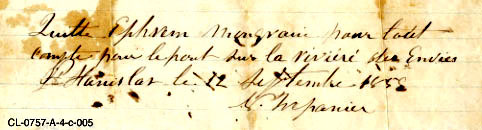 Quitte Ephrem Mongrain pour tout
compte pour le pont sur la rivière des Envies
St Stanislas le 12 Septembre
Trepanier
CL-0757-A-4-c-005